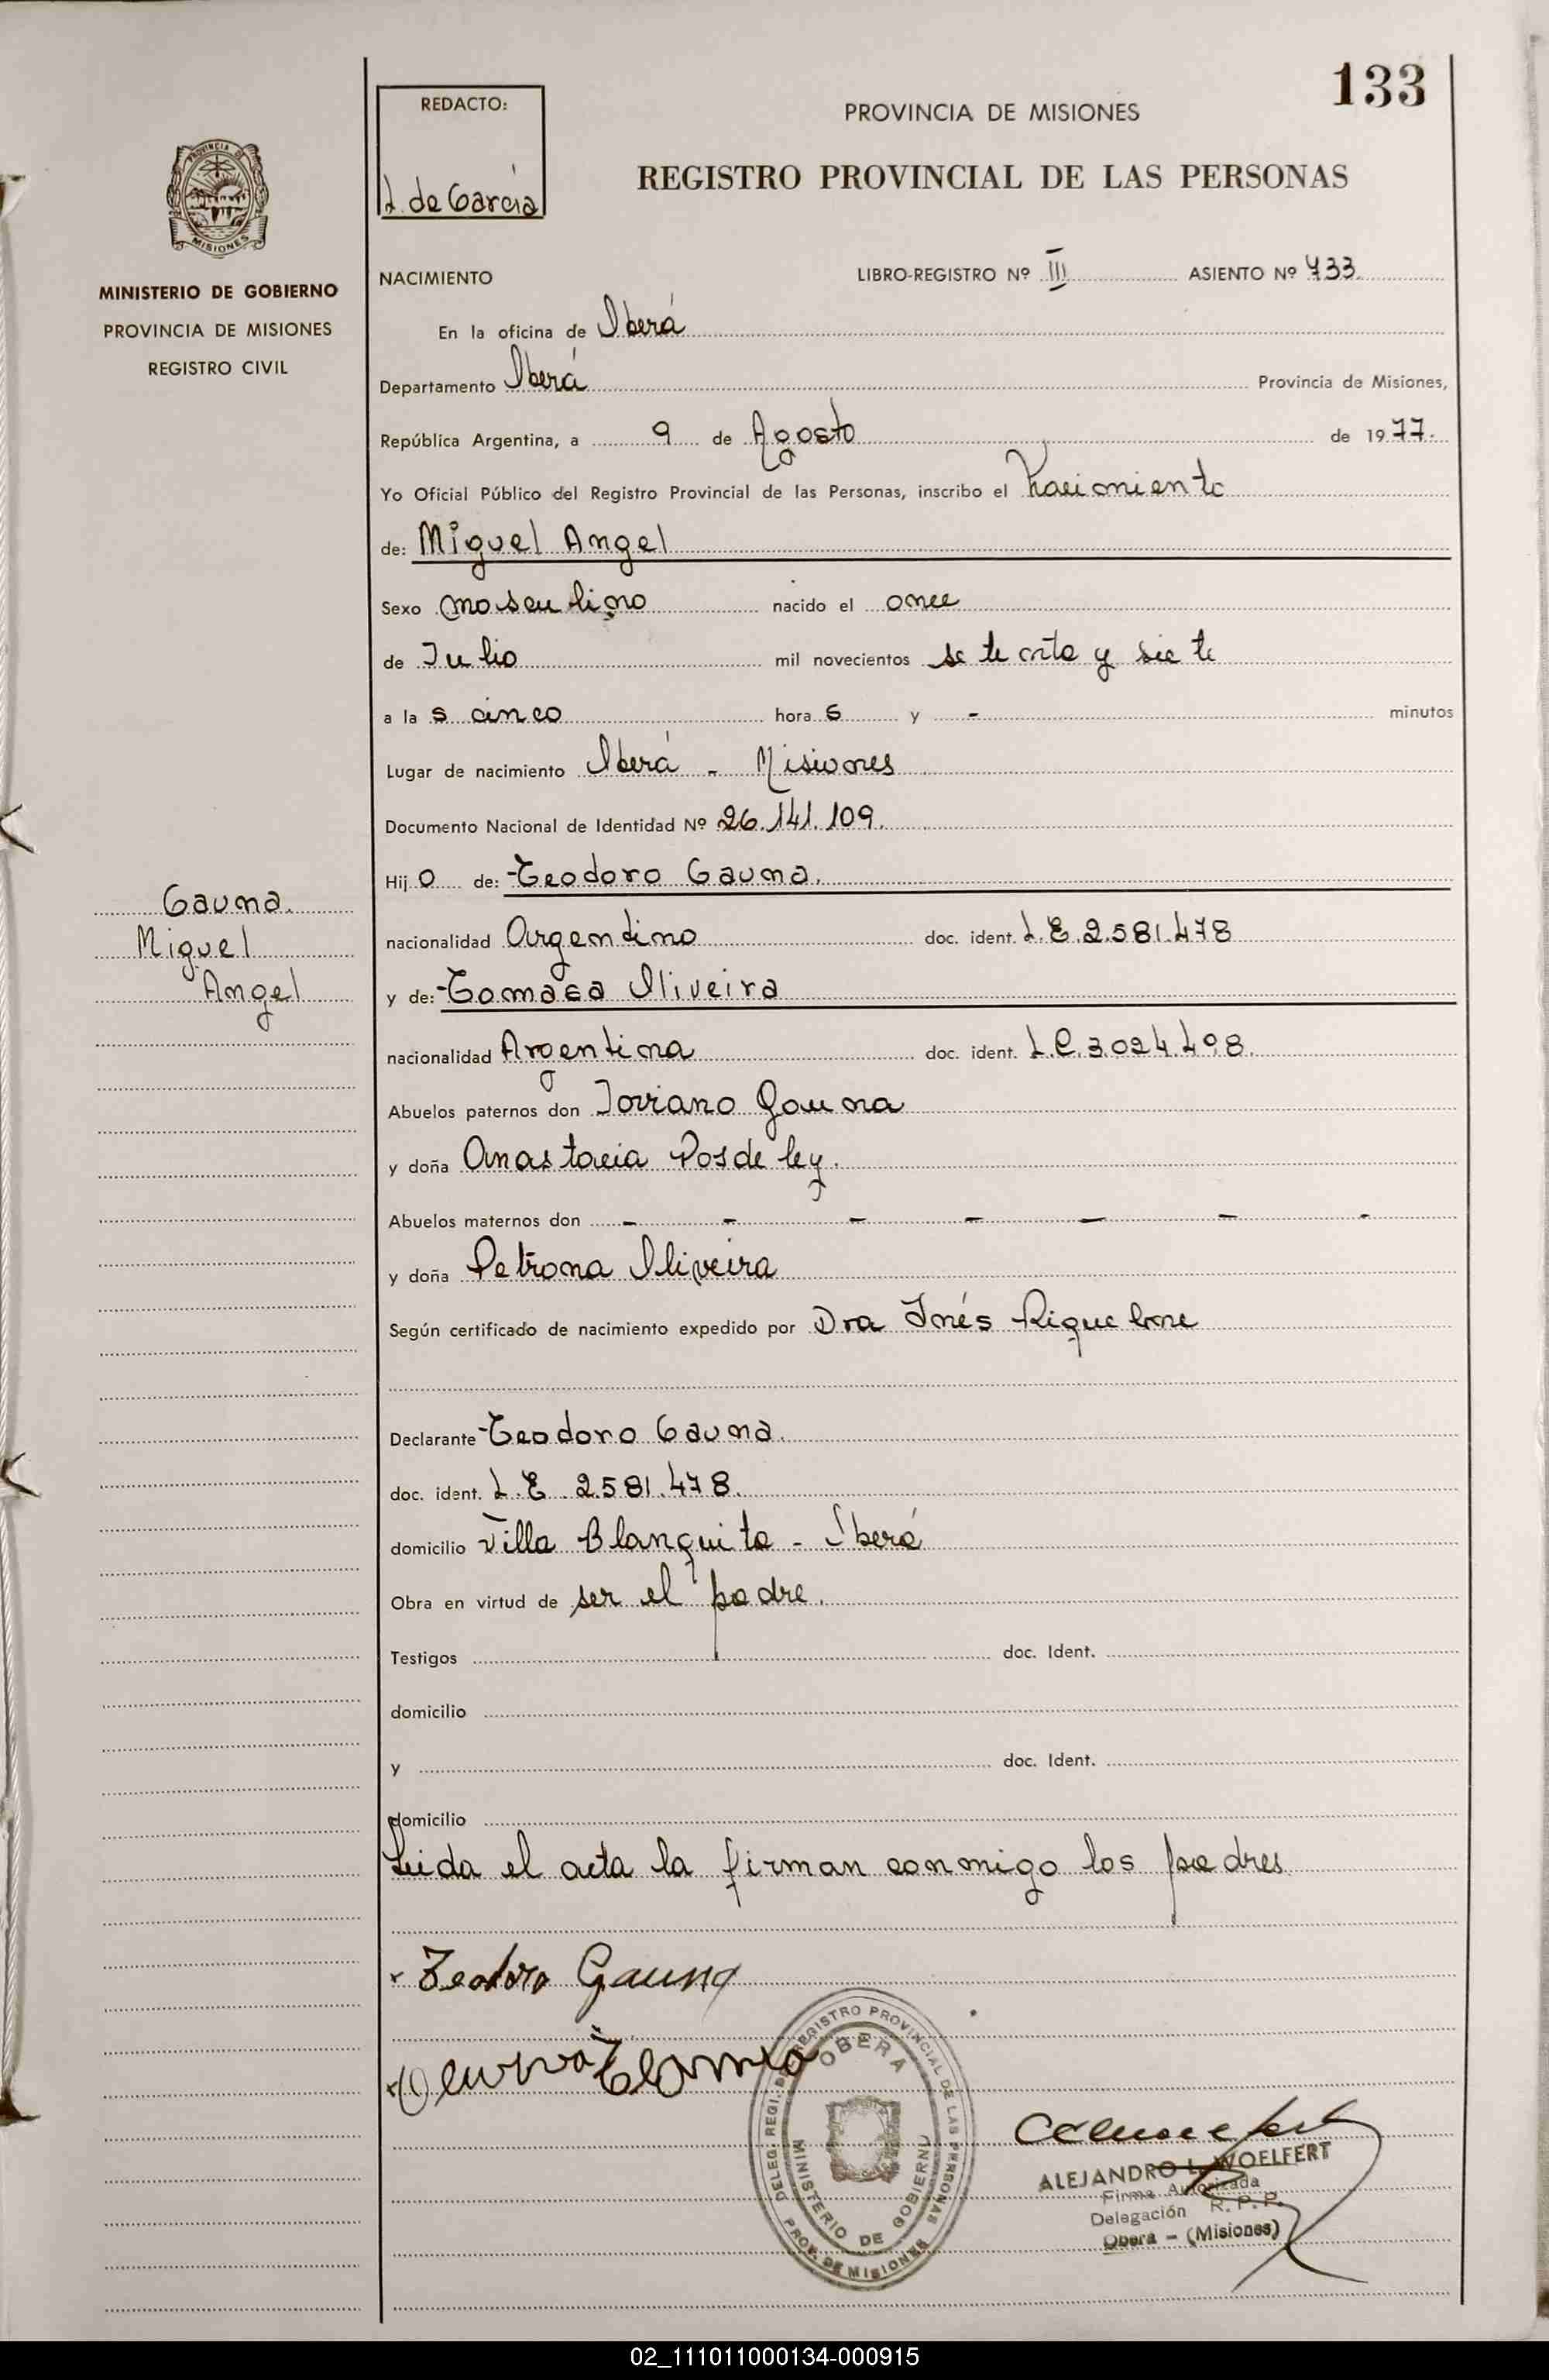 133
REDACTO:
L. de García
PROVINCIA DE MISIONES
REGISTRO PROVINCIAL DE LAS PERSONAS
MISIONES
MINISTERIO DE GOBIERNO
PROVINCIA DE MISIONES
REGISTRO CIVIL
NACIMIENTO LIBRO-REGISTRO Nº III ASIENTO Nº 733
En la oficina de Oberá
Departamento Oberá Provincia de Misiones,
República Argentina, a 9 de Agosto de 1977.
Yo Oficial Público del Registro Provincial de las Personas, inscribo el Nacimiento
de: Miguel Angel
Sexo masculino nacido el once
de Julio mil novecientos setenta y siete
a la s cinco hora s y - minutos
Lugar de nacimiento Oberá - Misiones
Documento Nacional de Identidad Nº 26.141.109.
Hij o de: Teodoro Gauna.
Gauna.
Miguel
Angel
nacionalidad Argentino doc. ident. L.E.2.581.478
y de: Tomasa Oliveira
nacionalidad Argentina doc. ident. L.C.3.024.408.
Abuelos paternos don Joviano Gauna
y doña Anastacia Posdeley.
Abuelos maternos don - - - - - - -
y doña Petrona Oliveira
Según certificado de nacimiento expedido por Dra Inés Riquelme
Declarante Teodoro Gauna.
doc. ident. L.E 2.581.478.
domicilio Villa Blanquita - Oberá
Obra en virtud de ser el padre.
Testigos doc. Ident.
domicilio
y doc. Ident.
domicilio
Leida el acta la firman conmigo los padres
Teodoro Gauna
DELEG. REGI. REGISTRO PROVINCIAL DE LAS PERSONAS
OBERA
MINISTERIO DE GOBIERNO
PROV. DE MISIONES
ALEJANDRO L. WOELFERT
Firma Autorizada
Delegación R.P.P.
Obera - (Misiones)
02_111011000134-000915